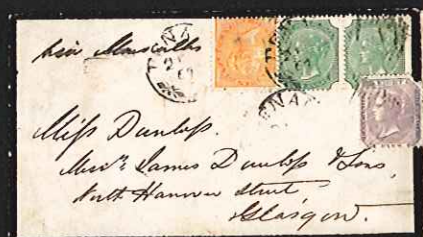 via Marseilles
TENA
Miss Dunlop.
Mess.rs James Dunlop & Sons,
North Hanover Street
Glasgow.